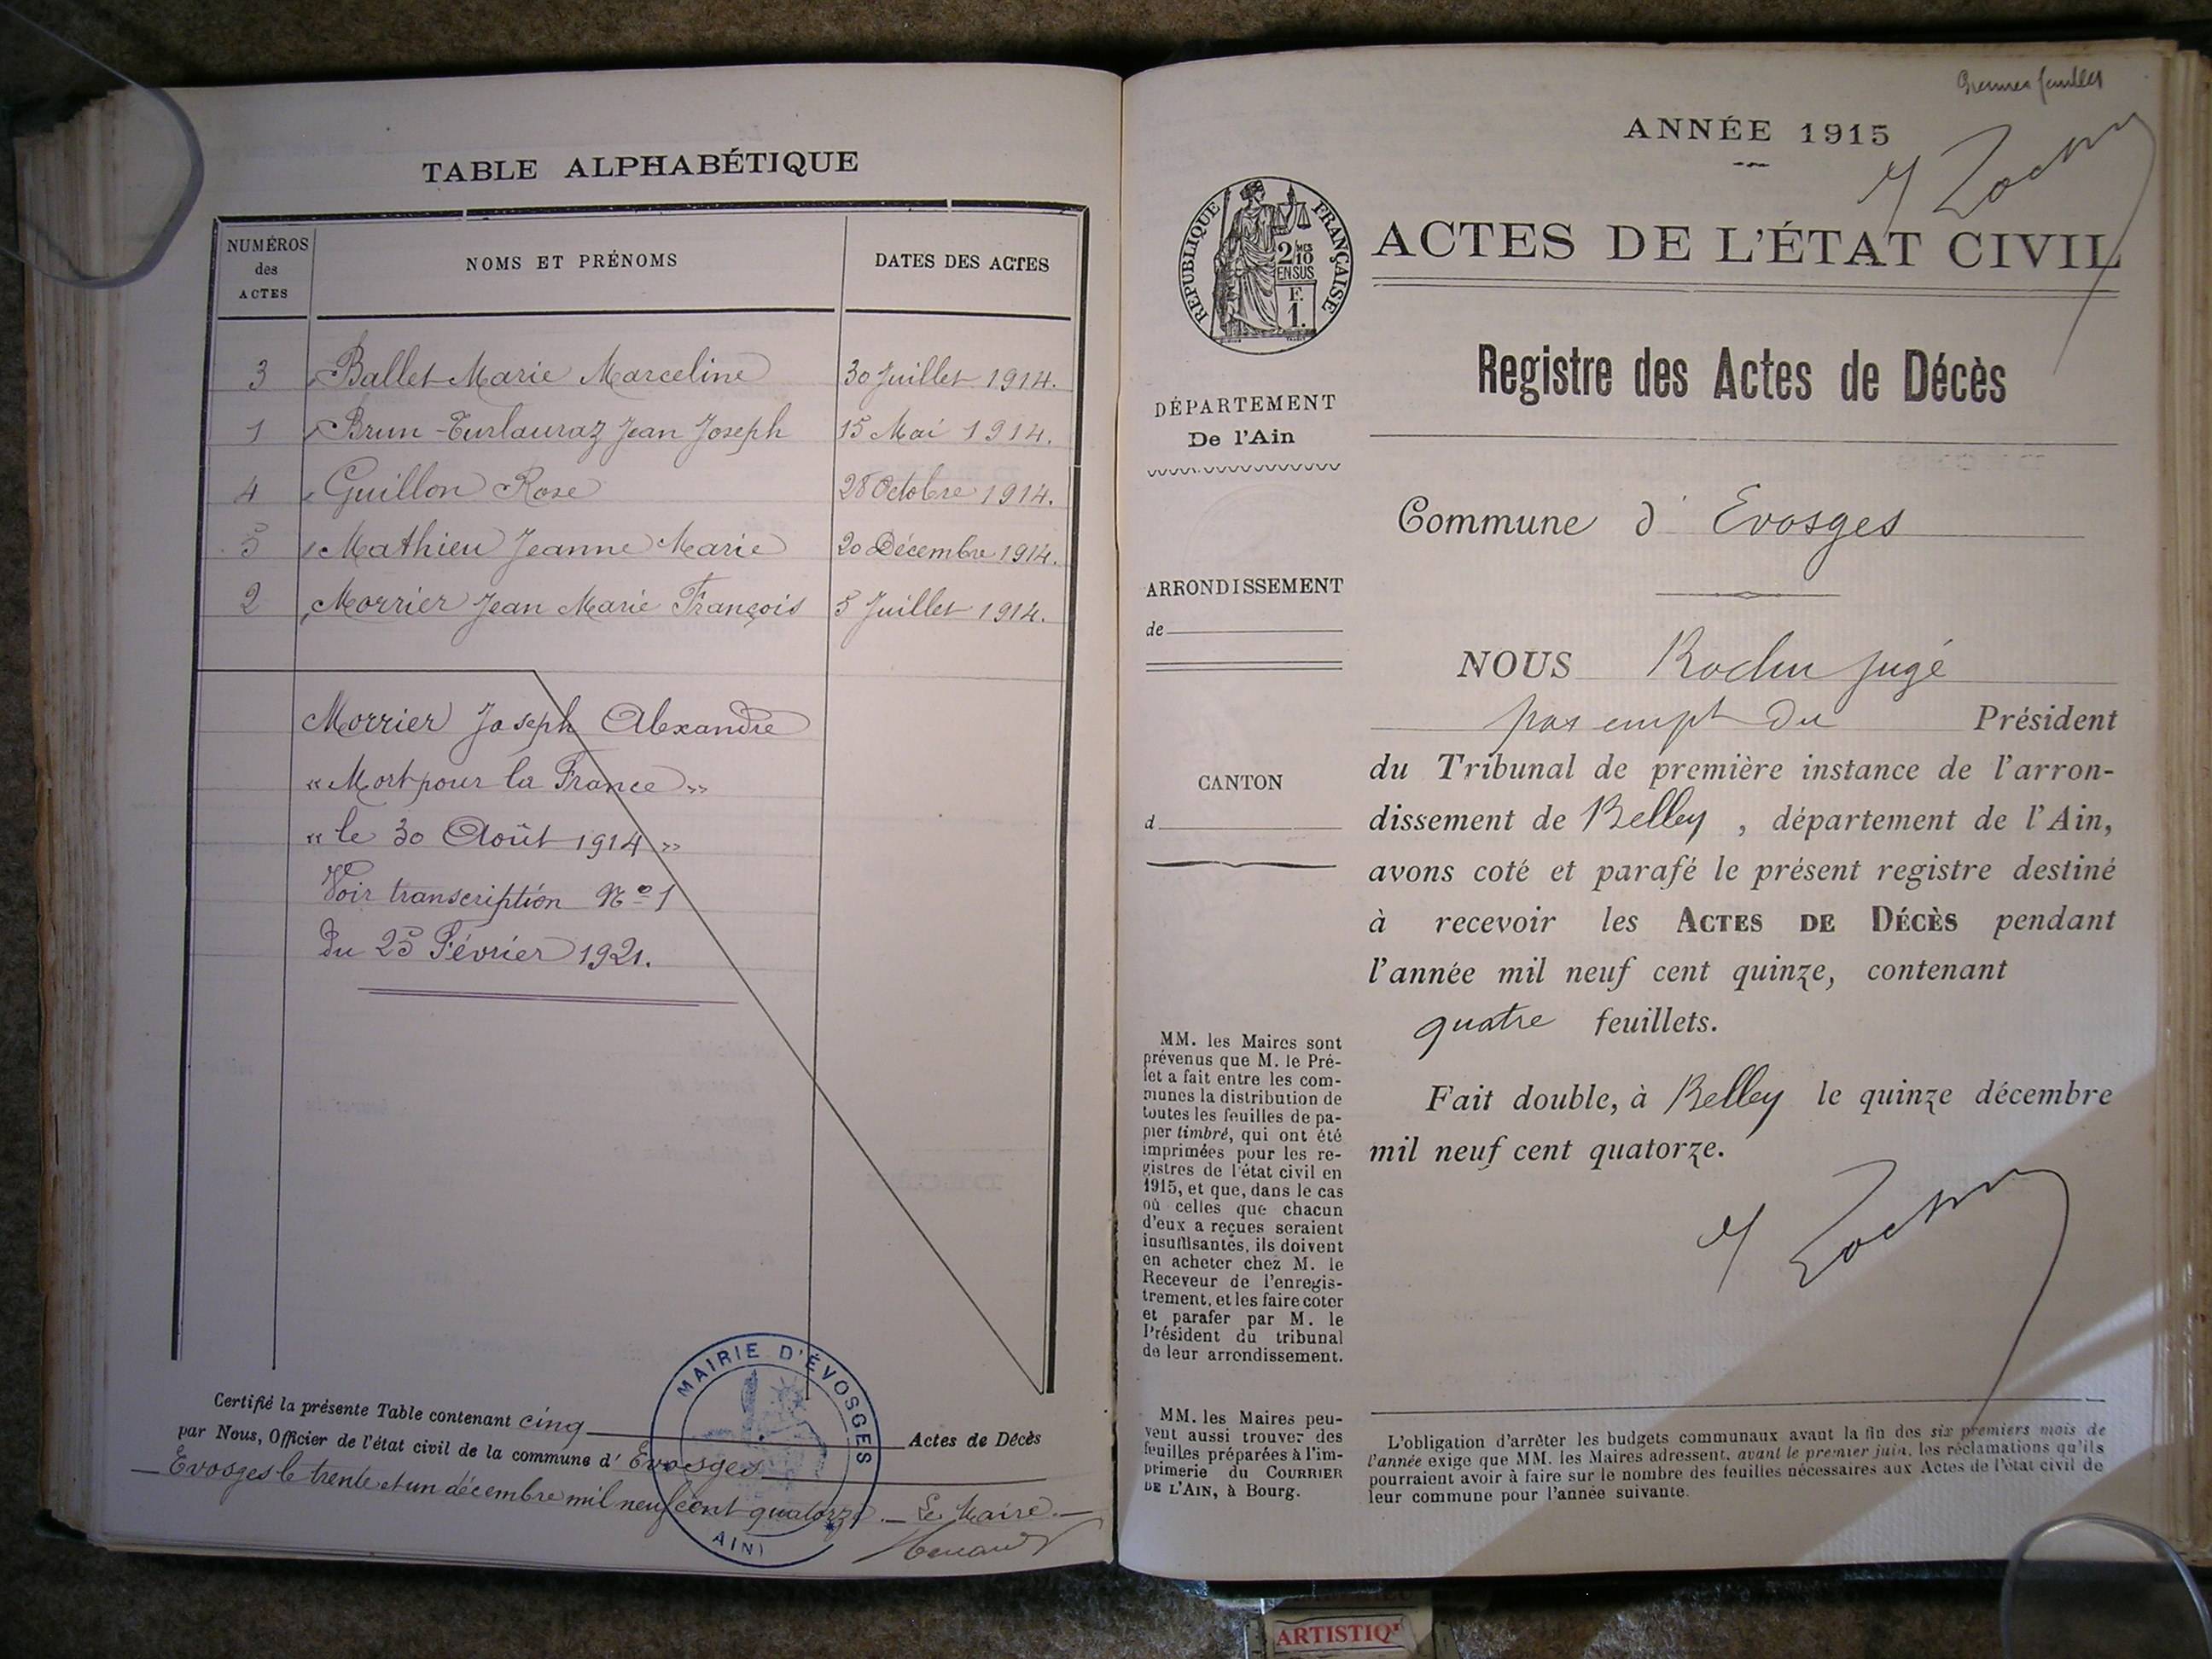 TABLE ALPHABÉTIQUE
NUMÉROS des ACTES
NOMS ET PRÉNOMS
DATES DES ACTES
3 Ballet Marie Marceline 30 Juillet 1914.
1 Brun-Turlauraz Jean Joseph 15 Mai 1914.
4 Guillon Rose 28 Octobre 1914.
5 Mathieu Jeanne Marie 20 Décembre 1914.
2 Morrier Jean Marie François 5 Juillet 1914.
Morrier Joseph Alexandre
« Mort pour la France »
« le 30 Août 1914 »
Voir transcription N° 1
du 25 Février 1921.
Certifié la présente Table contenant cinq Actes de Décès
par Nous, Officier de l'état civil de la commune d' Evosges
Evosges le trente et un décembre mil neuf cent quatorze. Le Maire.
MAIRIE D'ÉVOSGES
AIN
ANNÉE 1915
RÉPUBLIQUE FRANÇAISE
2/10 MES
EN SUS
F.
1.
ACTES DE L'ÉTAT CIVIL
Registre des Actes de Décès
DÉPARTEMENT
De l'Ain
Commune d' Evosges
ARRONDISSEMENT
de
CANTON
d
NOUS Rochu juge
empt du Président
du Tribunal de première instance de l'arron-
dissement de Belley, département de l'Ain,
avons coté et parafé le présent registre destiné
à recevoir les ACTES DE DÉCÈS pendant
l'année mil neuf cent quinze, contenant
quatre feuillets.
Fait double, à Belley le quinze décembre
mil neuf cent quatorze.
MM. les Maires sont
prévenus que M. le Pré-
fet a fait entre les com-
munes la distribution de
toutes les feuilles de pa-
pier timbré, qui ont été
imprimées pour les re-
gistres de l'état civil en
1915, et que, dans le cas
où celles que chacun
d'eux a reçues seraient
insuffisantes, ils doivent
en acheter chez M. le
Receveur de l'enregis-
trement, et les faire coter
et parafer par M. le
Président du tribunal
de leur arrondissement.
MM. les Maires peu-
vent aussi trouver des
feuilles préparées à l'im-
primerie du COURRIER
DE L'AIN, à Bourg.
L'obligation d'arrêter les budgets communaux avant la fin des six premiers mois de
l'année exige que MM. les Maires adressent, avant le premier juin, les réclamations qu'ils
pourraient avoir à faire sur le nombre des feuilles nécessaires aux Actes de l'état civil de
leur commune pour l'année suivante.
ARTISTIQ